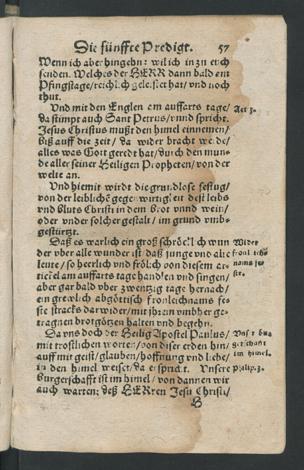 Die fünffte Predigt. 57
Wenn ich aber hingehn: wil ich in zu euch
senden. Welches der HERR dann bald am
Pfingstage/reichlich geleistet hat/ und noch
thut.
Und mit den Englen am auffarts tage/
da stimpt auch Sanct Petrus/vnnd spricht.
Jesus Christus mußt den himel einnemen/
biß auff die zeit/ da wider bracht werde/
alles was Gott geredt hat/durch den mun-
de aller seiner Heiligen Propheten/von der
welt an.
Act 3.
Und hiemit wirdt die grundlose satzug/
von der leiblichē gegenwirtigkeit deß leibs
vnd Bluts Christi in dem Brot vnnd wein/
oder vnder solcher gestalt/ im grund vmb-
gestürtzt.
Daß es warlich ein groß schröcklich wun
der vber alle wunder ist/ daß junge vnd alte
leute/ so heerlich vnd frölich von disem ar-
tickel am auffarts tage handlen vnd singen/
aber gar bald vber zwentzig tage hernach/
ein grewlich abgöttisch fronleichnams fe-
ste stracks darwider/mit jhrem vmbher ge-
tragnen brotgötzen halten vnd begehn.
Wider
fronleich
nams fe-
ste.
Da vns doch der Heilig Apostel Paulus/
mit trostlichen worten/von diser erden hin/
auff mit geist/glauben/hoffnung vnd liebe/
in den himel weiset/da er spricht. Unsere
Burgerschafft ist im himel/ von dannen wir
auch warten/ deß HERren Jesu Christi/
Unser bur
gerschafft
im himel.
Philip.3.
H